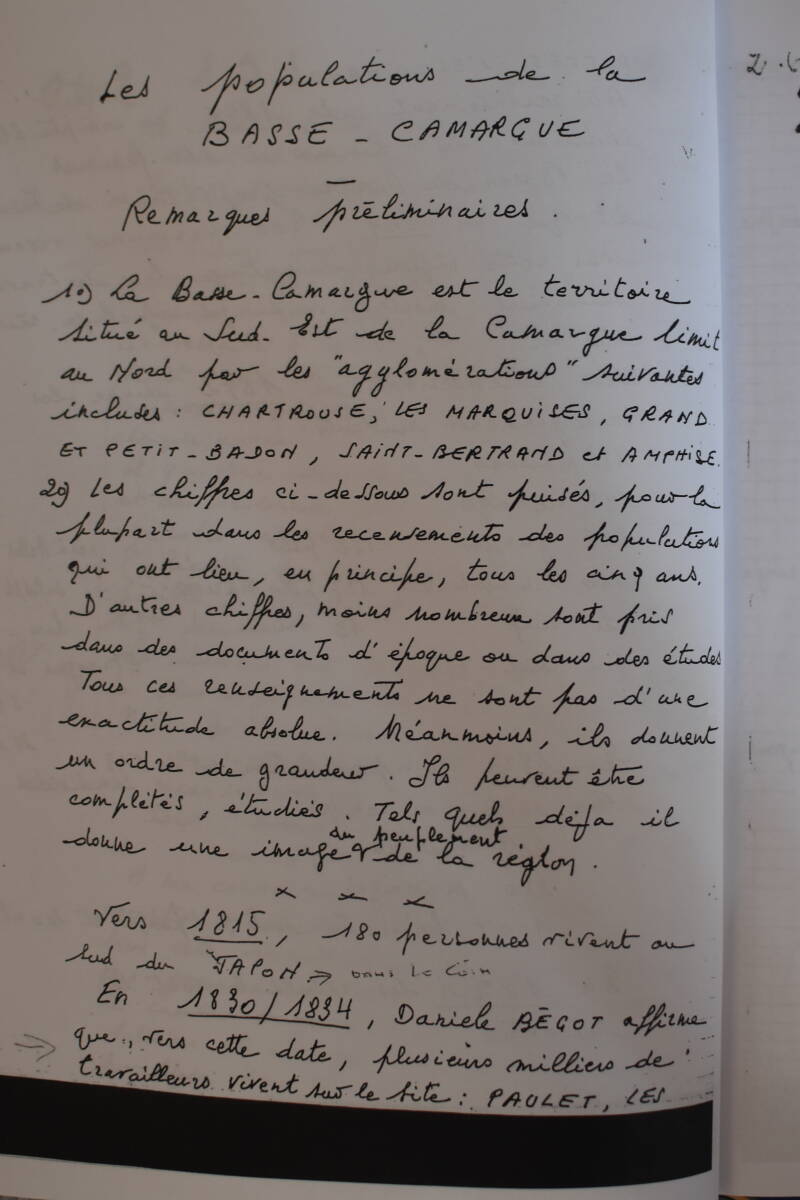 Les populations de la
BASSE - CAMARGUE
Remarques préliminaires.
1º) La Basse-Camargue est le territoire
situé au Sud-Est de la Camargue limit
au Nord par les "agglomérations" suivantes
incluses : CHARTROUSE, LES MARQUISES, GRAND
ET PETIT-BADON, SAINT-BERTRAND et AMPHISE.
2º) Les chiffres ci-dessous sont puisés, pour la
plupart dans les recensements des populations
qui ont lieu, en principe, tous les cinq ans.
D'autres chiffres, moins nombreux sont pris
dans des documents d'époque ou dans des études
Tous ces renseignements ne sont pas d'une
exactitude absolue. Néanmoins, ils donnent
un ordre de grandeur. Ils peuvent être
complétés, étudiés. Tels quels déjà il
du peuplement
donne une image de la région.
x x x
Vers 1815, 180 personnes vivent au
Sud du JAPON → dans le Coin
En 1830/1834, Daniele BÉGOT affirme
→ que, vers cette date, plusieurs milliers de
travailleurs vivent sur le site : PAULET, LES
2.